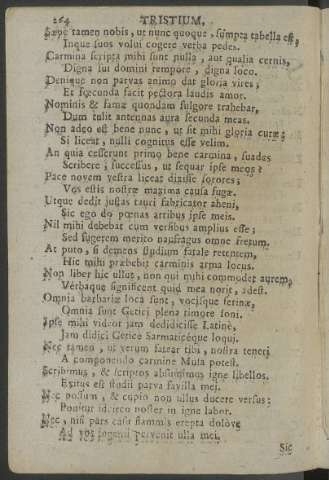 264 TRISTIUM.
Sæpe tamen nobis, ut nunc quoque, sumpta tabella est,
Inque suos volui cogere verba pedes.
Carmina scripta mihi sunt nulla, aut qualia cernis,
Digna sui domini tempore, digna loco.
Denique non parvas animo dat gloria vires;
Et fœcunda facit pectora laudis amor.
Nominis & famæ quondam fulgore trahebar,
Dum tulit antennas aura secunda meas.
Non adeo est bene nunc, ut sit mihi gloria curæ;
Si liceat, nulli cognitus esse velim.
An quia cesserunt primo bene carmina, suades
Scribere; successus, ut sequar ipse meos?
Pace novem vestra liceat dixisse sorores;
Vos estis nostræ maxima causa fugæ.
Utque dedit justas tauri fabricator aheni,
Sic ego do pœnas artibus ipse meis.
Nil mihi debebat cum versibus amplius esse;
Sed fugerem merito naufragus omne fretum.
At puto, si demens studium fatale retentem,
Hic mihi præbebit carminis arma locus.
Non liber hic ullus, non qui mihi commodet aurem,
Verbaque significent quid mea norit, adest.
Omnia barbariæ loca sunt, vocisque ferinæ,
Omnia sunt Getici plena timore soni.
Ipse mihi videor jam dedidicisse Latine,
Jam didici Getice Sarmaticéque loqui.
Nec tamen, ut verum fatear tibi, nostra teneri
A componendo carmine Musa potest.
Scribimus, & scriptos absumimus igne libellos.
Exitus est studii parva favilla mei.
Nec possum, & cupio non ullus ducere versus:
Ponitur idcirco noster in igne labor.
Nec, nisi pars casu flammis erepta dolove
Ad vos ingenii pervenit ulla mei.
Sic